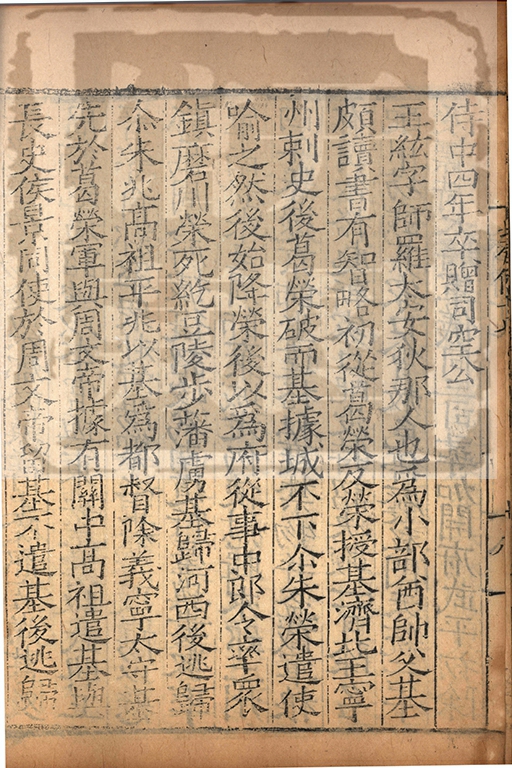 侍中四年卒贈司空公
王紘字師羅太安狄那人也爲小部酋帥父基
頗讀書有智略初從葛榮反榮授基濟北王寧
州刺史後葛榮破而基據城不下尒朱榮遣使
喻之然後始降榮後以爲府從事中郎令率衆
鎮磨川榮死紇豆陵步藩虜基歸河西後逃歸
尒朱兆高祖平兆以基爲都督除義寧太守基
先於葛榮軍與周文帝據有關中高祖遣基與
長史侯景同使於周文帝留基不遣基後逃歸